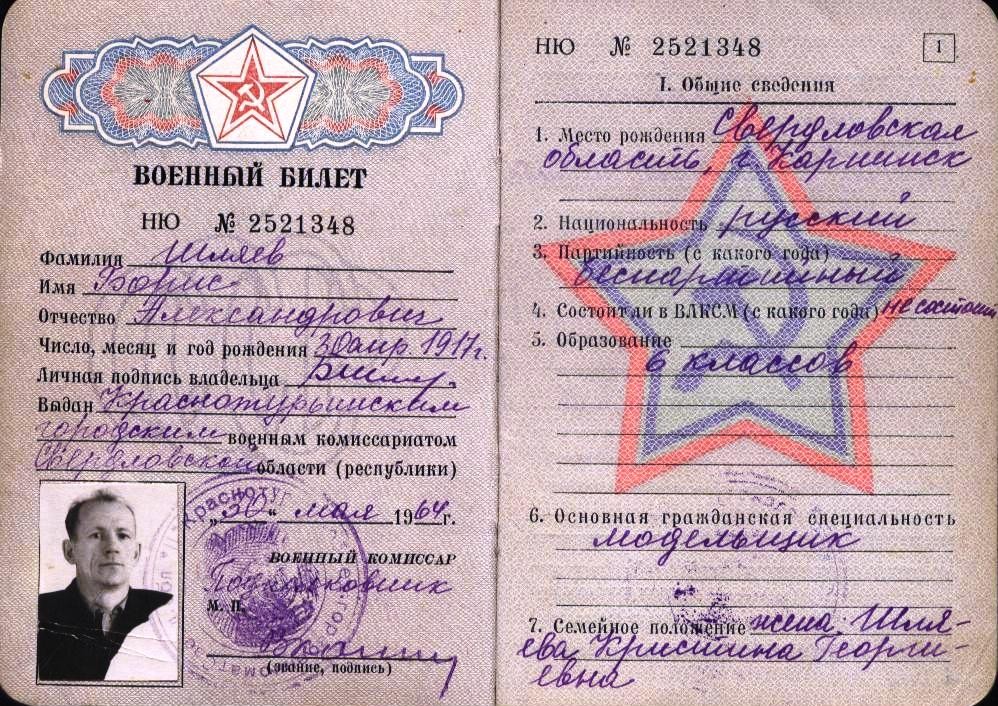 ВОЕННЫЙ БИЛЕТ
НЮ № 2521348
Фамилия Шляев
Имя Борис
Отчество Александрович
Число, месяц и год рождения 30 апр 1917г.
Личная подпись владельца
Выдан Краснотурьинским
городским военным комиссариатом
Свердловской области (республики)
„30“ мая 1964 г.
ВОЕННЫЙ КОМИССАР
Подполковник
М. П.
(звание, подпись)
НЮ № 2521348
1
I. Общие сведения
1. Место рождения Свердловская
область, г. Карпинск
2. Национальность русский
3. Партийность (с какого года)
беспартийный
4. Состоит ли в ВЛКСМ (с какого года) не состоит
5. Образование
6 классов
6. Основная гражданская специальность
модельщик
7. Семейное положение жена: Шля-
ева Кристина Георги-
евна